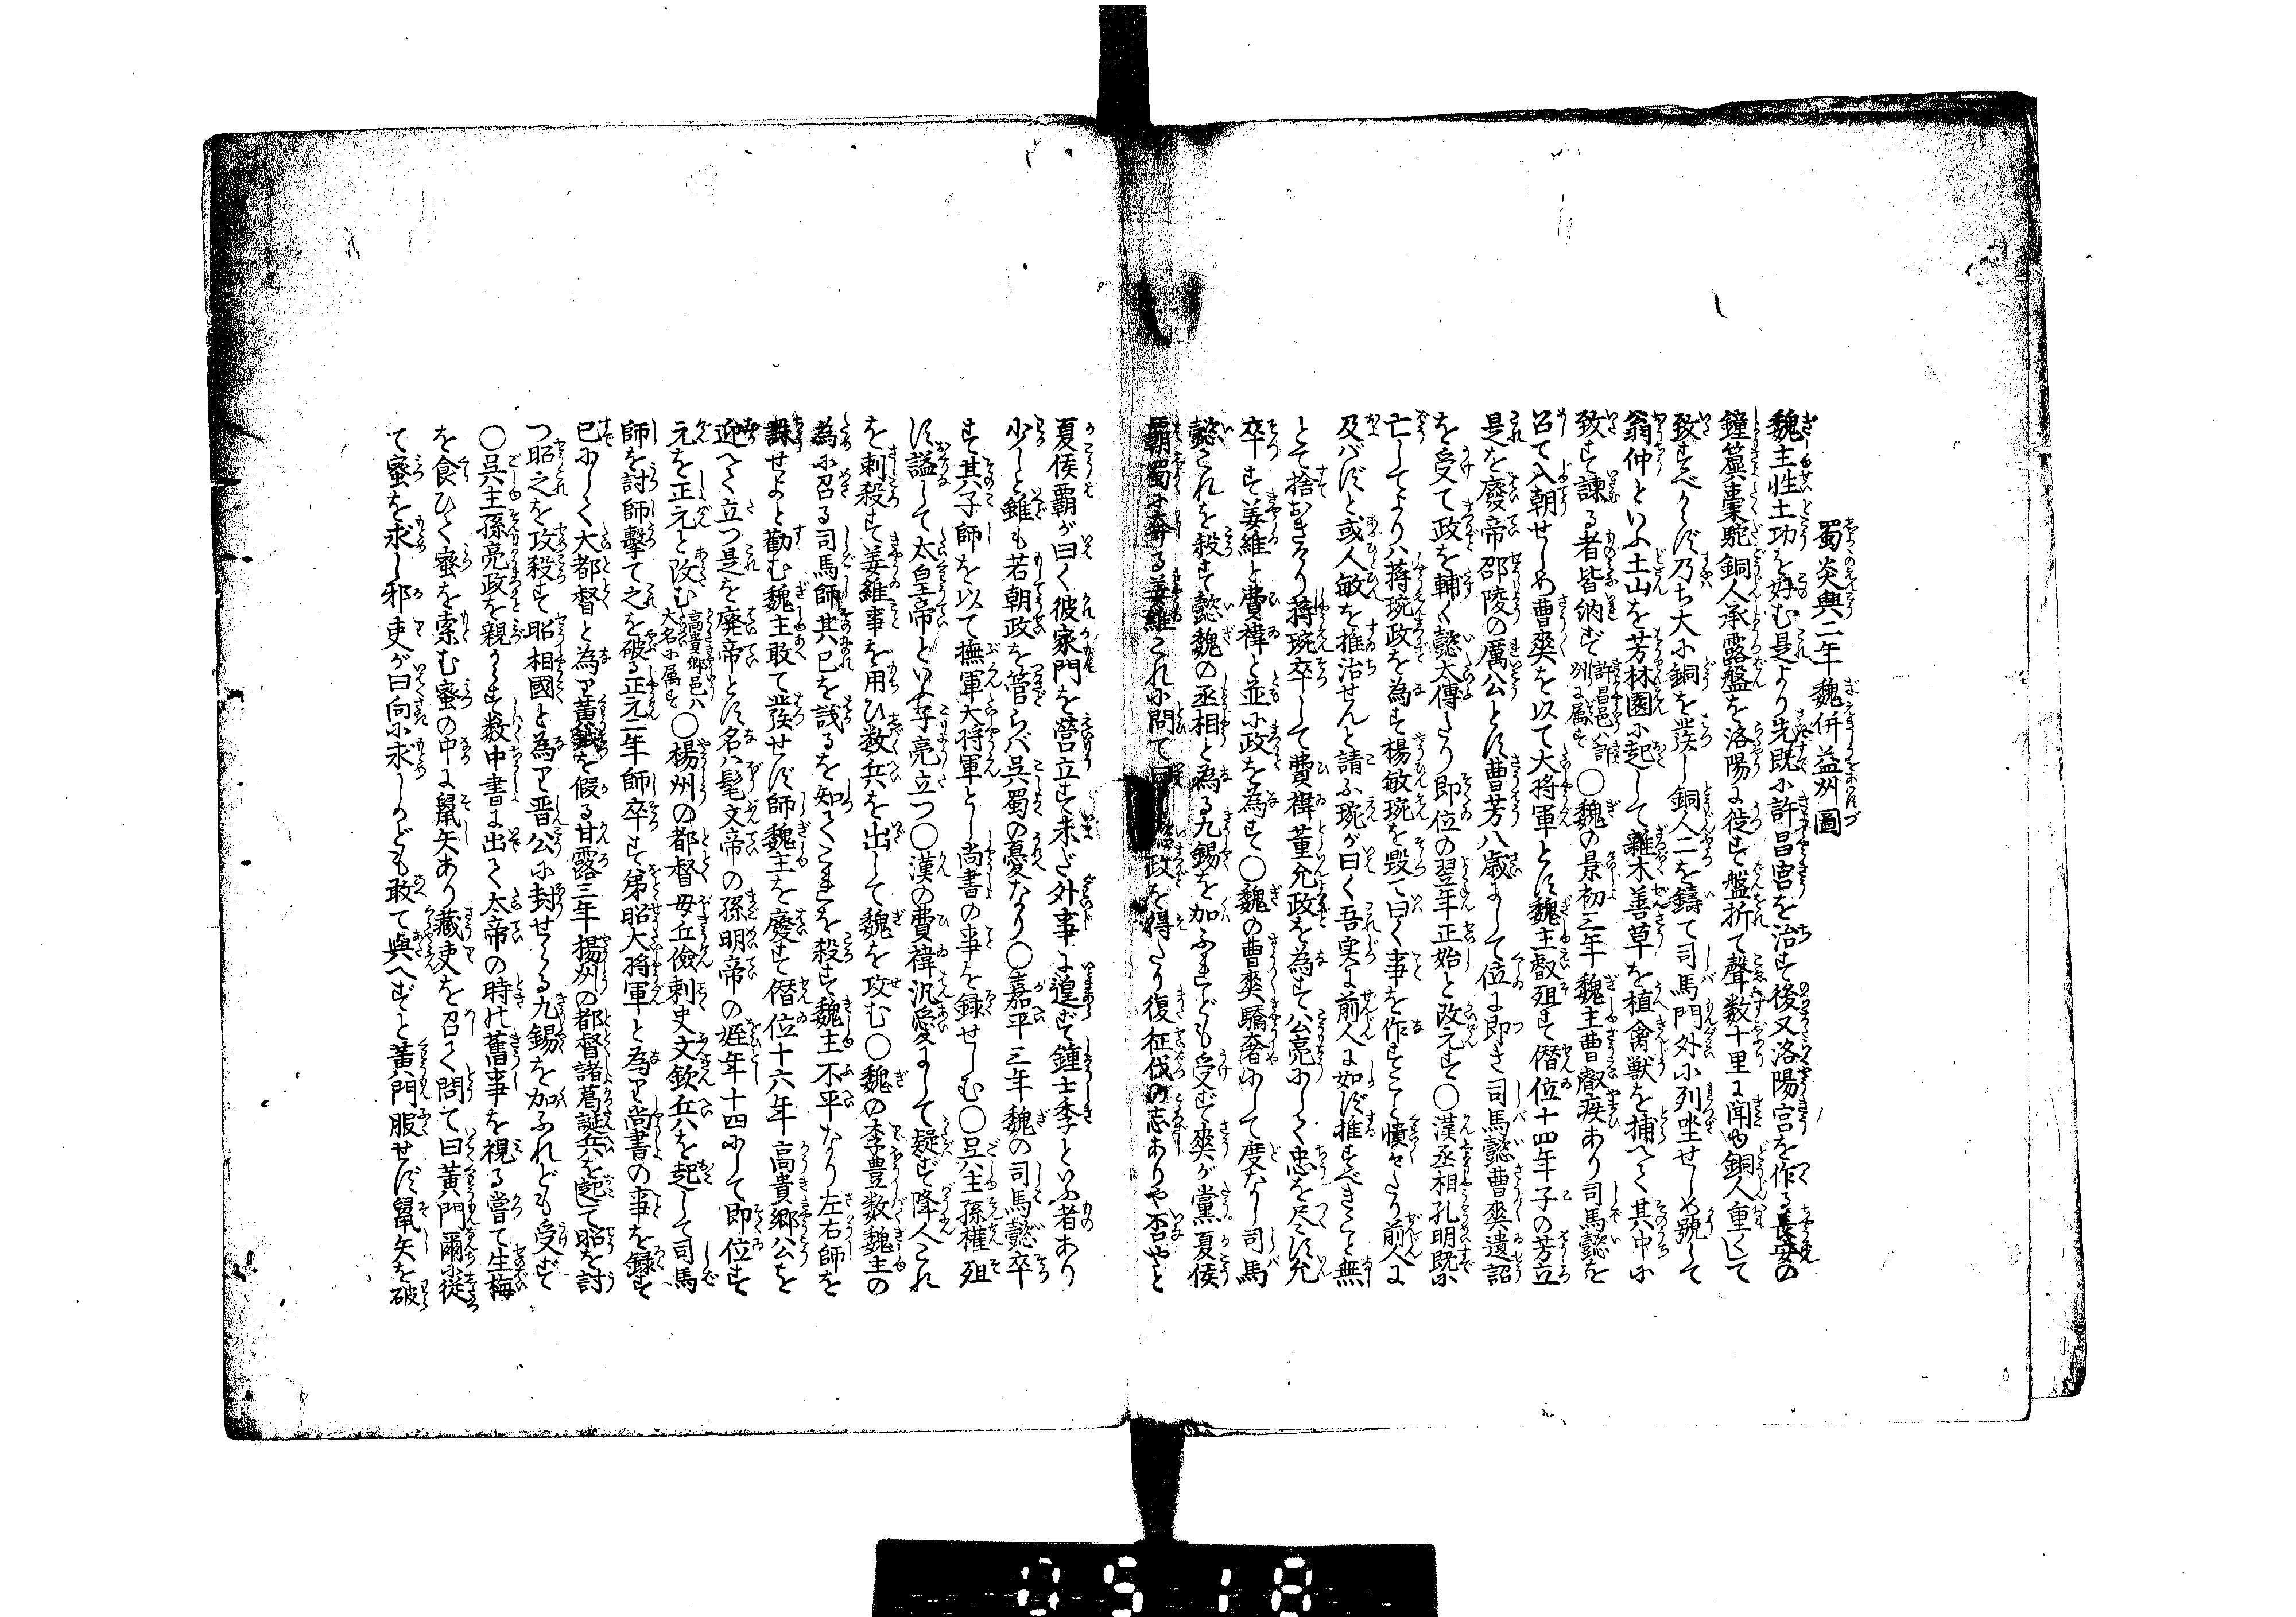 蜀炎興二年魏併益州圖
魏主性土功を好む是より先既に許昌宮を治す後又洛陽宮を作る長安の
鐘簴橐駝銅人承露盤を洛陽に徙す盤折て聲数十里に聞ゆ銅人重くして
致すべからず乃ち大に銅を發し銅人二を鑄て司馬門外に列坐せしめ號して
翁仲といふ土山を芳林園に起して雜木善草を植禽獣を捕へて其中に
致す諫る者皆納ず 許昌邑ハ許州に属す ○魏の景初三年魏主曹叡疾あり司馬懿を
召て入朝せしめ曹爽を以て大将軍とす魏主叡殂す僭位十四年子の芳立
是を廢帝邵陵の厲公とす曹芳八歳にして位に即き司馬懿曹爽遺詔
を受て政を輔く懿太傳たり即位の翌年正始と改元す○漢丞相孔明既に
亡してより蒋琬政を為す楊敏琬を毀て曰く事を作すこと憒々たり前人に
及バずと或人敏を推治せんと請ふ琬が曰く吾実に前人に如ず推すべきこと無
とて捨おきたり蒋琬卒して費禕董允政を為す公亮にして忠を尽す允
卒す姜維と費禕と並に政を為す○魏の曹爽驕奢にして度なし司馬
懿これを殺す懿魏の丞相と為る九錫を加ふれども受ず爽が黨夏侯
覇蜀に奔る姜維これに問て曰 懿政を得たり復征伐の志ありや否やと
夏侯覇が曰く彼家門を營立す未だ外事に遑ず鍾士季といふ者あり
少しと雖も若朝政を管らバ呉蜀の憂なり○嘉平三年魏の司馬懿卒
す其子師を以て撫軍大将軍とし尚書の事を録せしむ○呉主孫權殂
す謚して太皇帝といふ子亮立つ○漢の費禕汎愛にして疑ず降人これ
を刺殺す姜維事を用ひ数兵を出して魏を攻む○魏の李豊数魏主の
為に召る司馬師其已を議るを知てこれを殺す魏主不平なり左右師を
誅せよと勸む魏主敢て發せず師魏主を廢す僭位十六年高貴郷公を
迎へて立つ是を廃帝とす名ハ髦文帝の孫明帝の姪年十四にして即位す
元を正元と改む 高貴郷邑ハ大名に属す ○楊州の都督毋丘儉刺史文欽兵を起して司馬
師を討師擊て之を破る正元二年師卒す弟昭大将軍と為り尚書の事を録す
已にして大都督と為り黄鉞を假る甘露三年楊州の都督諸葛誕兵を起して昭を討
つ昭之を攻殺す昭相國と為り晋公に封せらる九錫を加ふれども受ず
○呉主孫亮政を親らす数中書に出て太帝の時の舊事を視る嘗て生梅
を食ひて蜜を索む蜜の中に鼠矢あり藏吏を召て問て曰黄門爾に従
て蜜を求し邪吏が曰向に求しかども敢て與へずと黄門服せず鼠矢を破
0518